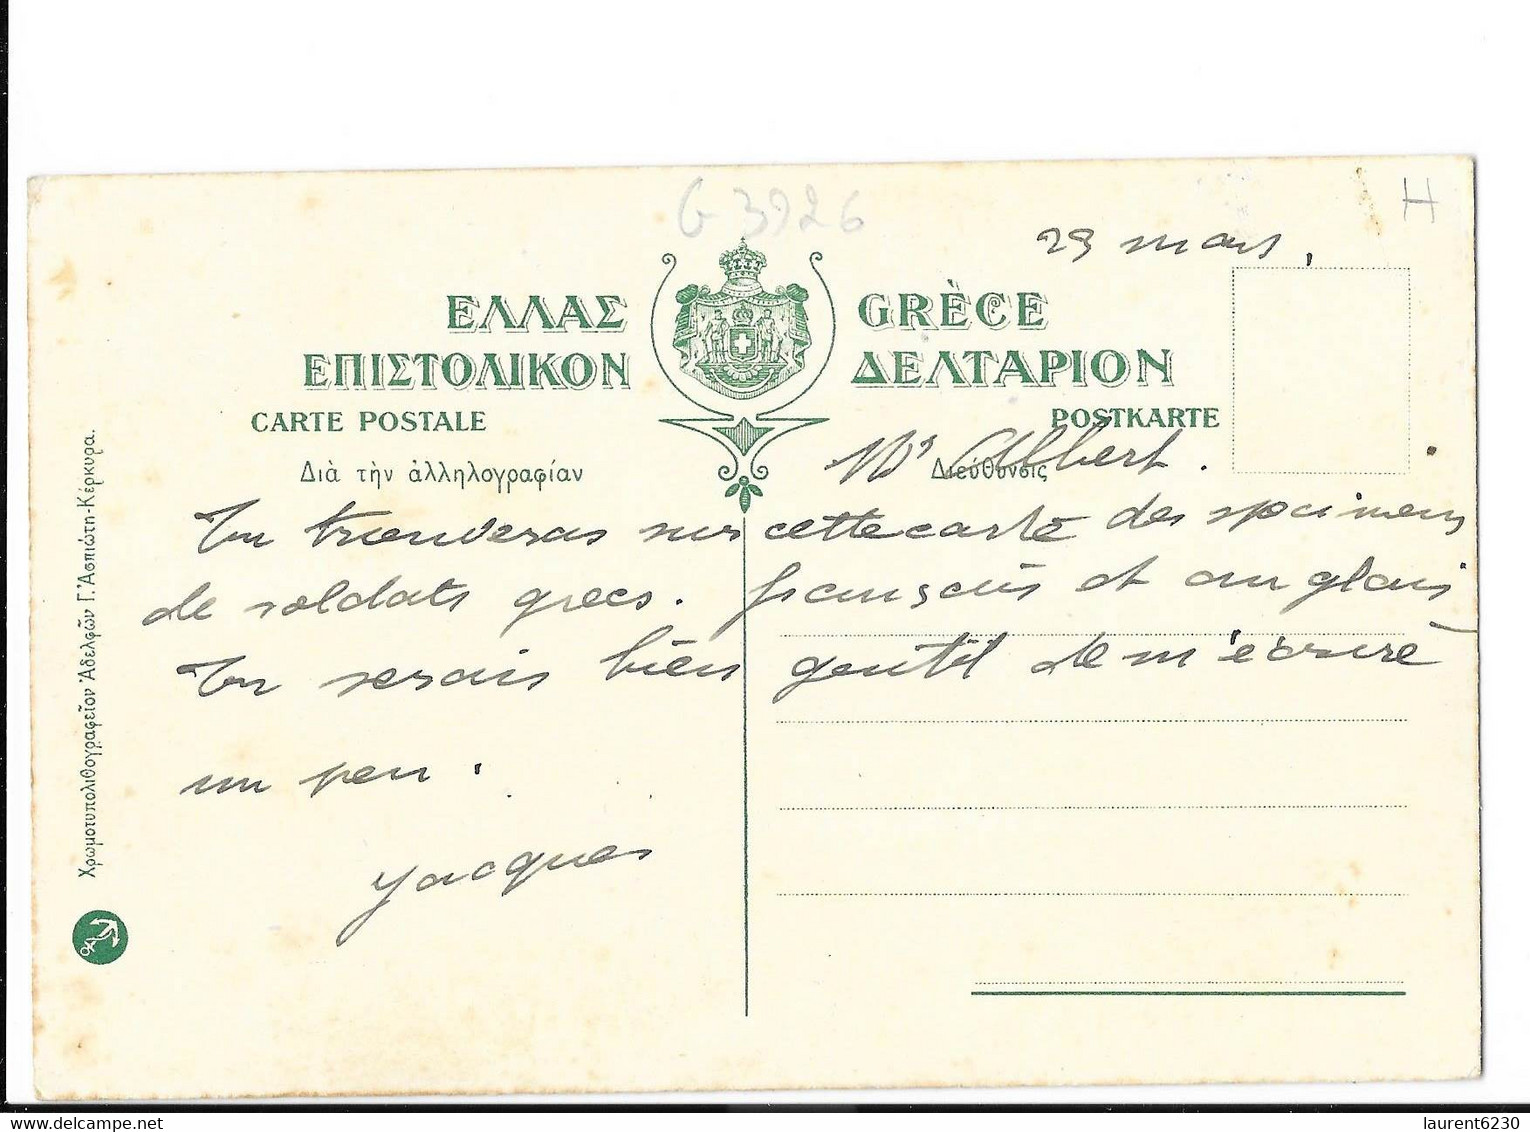 G 3926
H
23 mars,
ΕΛΛΑΣ GRÈCE
ΕΠΙΣΤΟΛΙΚΟΝ ΔΕΛΤΑΡΙΟΝ
CARTE POSTALE POSTKARTE
Διὰ τὴν ἀλληλογραφίαν Διεύθυνσις
Mr Albert.
Tu trouveras sur cette carte des specimens
de soldats grecs. français et anglais
Tu serais bien gentil de m'écrire
un peu.
Jacques
Χρωμοτυπολιθογραφεῖον Ἀδελφῶν Γ. Ἀσπιώτη-Κέρκυρα.
laurent6230